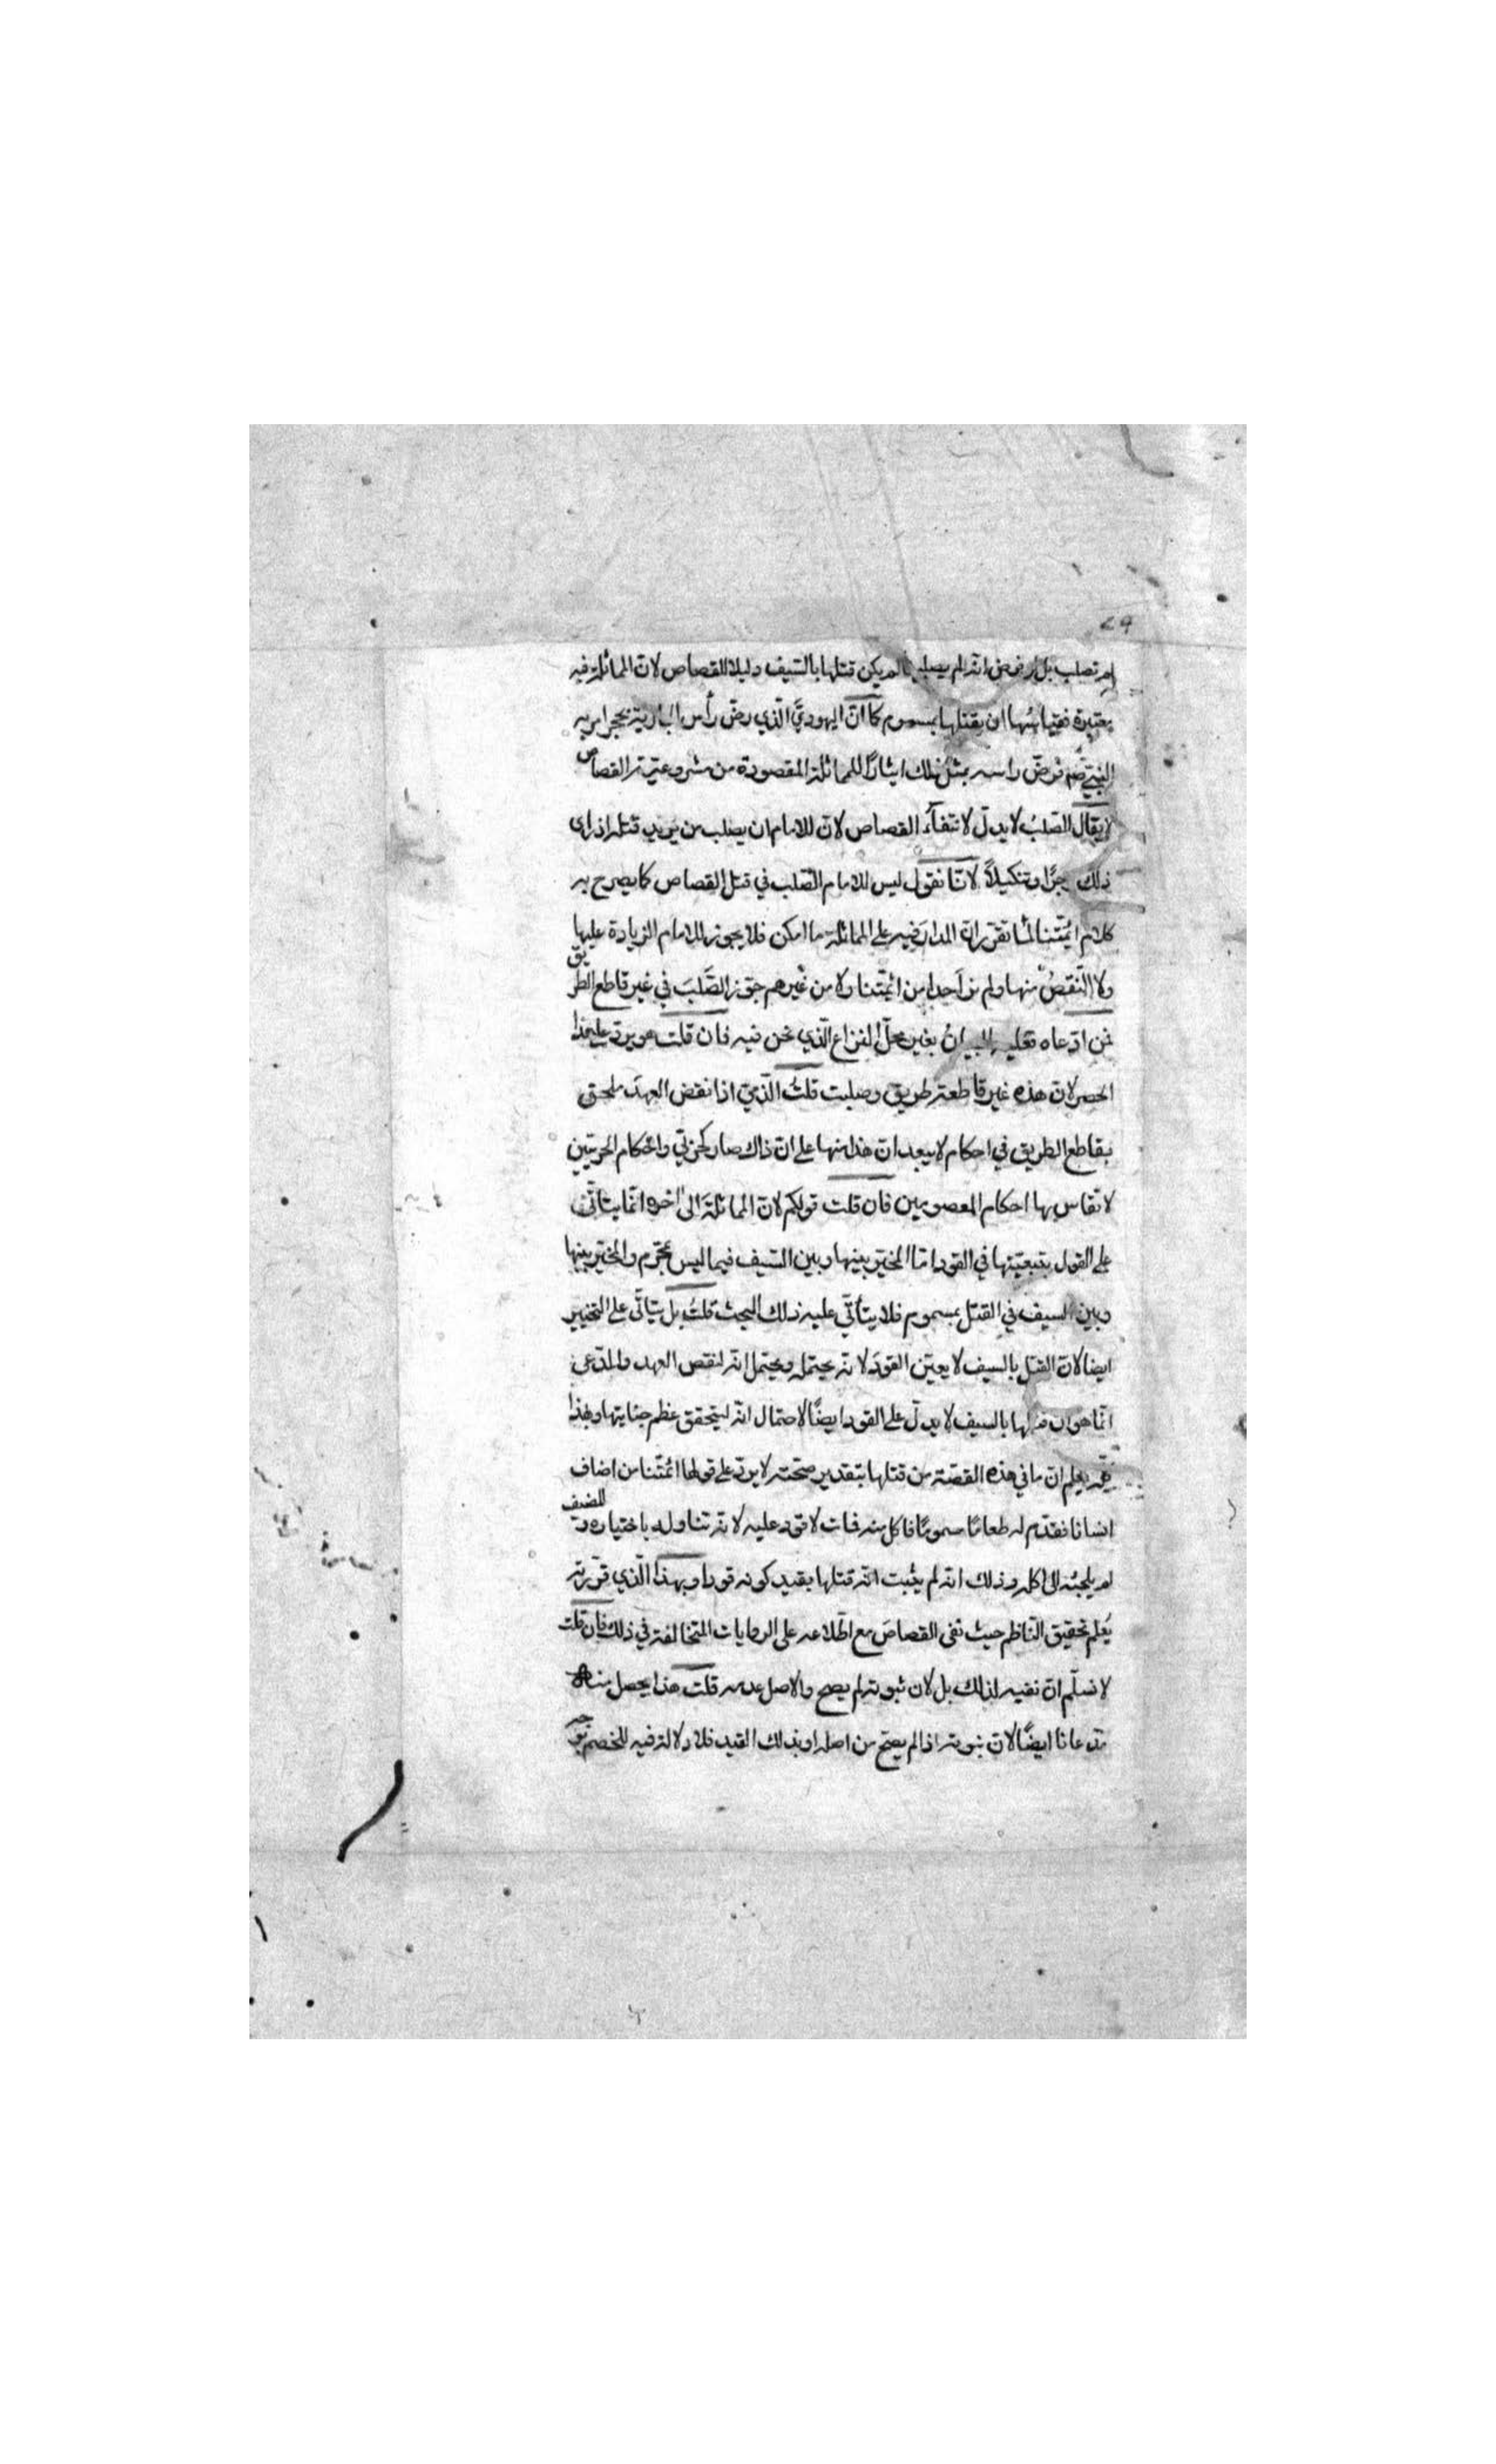 ٢٩
لم تصلب بل لو فرض انه لم يصلبها لم يكن قتلها بالسيف دليلا للقصاص لان المماثلة فيه
معتبرة فقياسها ان يقتلها بمسموم كما انّ اليهوديَّ الّذي رضّ رأس الجارية بحجر امر به
النبي صم فرضّ راسه بمثل ذلك ايثارًا للمماثلة المقصودة من مشروعية القصاص
لا يقال الصّلبُ لا يدلّ لانتفآء القصاص لانّ للامام ان يصلب من يريد قتله اذا راى
ذلك زجرًا وتنكيلاً لانّا نقول ليس للامام الصّلب في قتل القصاص كما يصرح به
كلام ائمّتنا لما تقرر ان المدار فيه على المماثلة ما امكن فلا يجوز للامام الزيادة عليها
ولا النّقصُ منها ولم نر اَحدا من ائمّتنا ولا من غيرهم جوّز الصَّلبَ في غير قاطع الطريق
فمن ادّعاه فعليه البيانُ بغير محلّ النزاع الّذي نحن فيه فان قلت هو يرد على هذا
الحصر لان هذه غير قاطعة طريق وصلبت قلتُ الذّميّ اذا نقض العهدَ ملحق
بقاطع الطريق في احكام لا يبعد انّ هذا منها على انّ ذاك صار كحربيّ واحكام الحربيّين
لا تقاس بها احكام المعصومين فان قلت قولكم لانّ المماثلةَ الى اٰخره انّما يتاتّى
على القول بتعيّنها في القود امّا المخيّر بينها وبين السّيف فيما ليس بمحرّم والمخيّر بينها
وبين السيف في القتل بمسموم فلا يتأتّي عليه ذلك البحث قلتُ بل يتاتّى على التخيير
ايضا لانّ القتل بالسيف لا يعيّن القودَ لانّه يحتمله ويحتمل انّه لنقض العهد والمدّعى
انّما هو ان قتلها بالسيف لا يدلّ على القود ايضًا لاحتمال انّه ليتحقق عظم جنايتها وبهذا
يعلم انّ ما في هذه القصّة من قتلها بتقدير صحّته لا يردّ على قول ائمّتنا من اضاف
انسانا فقدّم له طعامًا مسمومًا فاكل منه فمات لا قود عليه لانّه تناوله باختياره والمضيف
لم يلجئه الى اكله وذلك انّه لم يثبت انّه قتلها بقيد كونه قودا وبهذا الّذي قرّرته
يُعلم تحقيق النّاظم حيث نفى القصاصَ مع اطّلاعه على الروايات المتخالفة في ذلك فان قلت
لا نسلّم انّ نفيه لذلك بل لان ثبوته لم يصح والاصل عدمه قلت هذا يحصل منه
مدّعانا ايضًا لانّ ثبوته اذا لم يصحّ من اصله او بذلك القيد فلا دلالة فيه للخصم